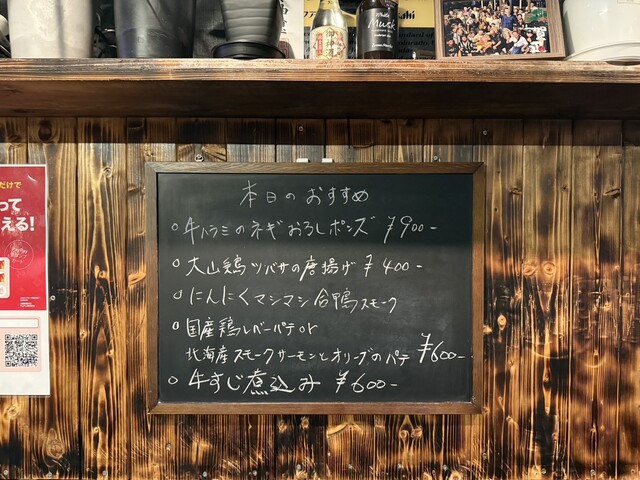 本日のおすすめ
○牛ハラミのネギおろしポンズ ¥900-
○大山鶏ツバサの唐揚げ ¥400-
○にんにくマシマシ合鴨スモーク
○国産鶏レバーパテor
北海産スモークサーモンとオリーブのパテ ¥600-
○牛すじ煮込み ¥600-
だけで
って
える!